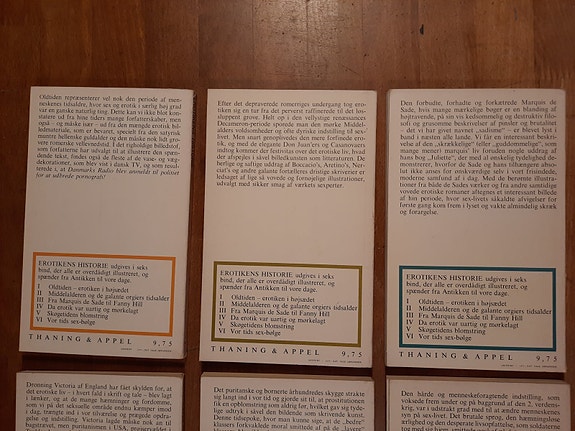 Oldtiden repræsenterer vel nok den periode af men-
neskenes tidsaldre, hvor sex og erotik i særlig høj grad
var en ganske naturlig ting. Dette kan vi ikke blot kon-
statere ud fra hine tiders mange forfatterskaber, men
også – og måske især – ud fra den mængde erotisk bil-
ledmateriale, som er bevaret, specielt fra den satyrisk
muntre hellenske guldalder og den måske nok lidt gro-
vere romerske velleveds tid. I det righoldige billedstof,
som forfatterne har udvalgt til at illustrere den spæn-
dende tekst, findes også de fleste af de vase- og væg-
dekorationer, som blev vist i dansk TV, og som resul-
terede i, at Danmarks Radio blev anmeldt til politiet
for at udbrede pornografi!
EROTIKENS HISTORIE udgives i seks
bind, der alle er overdådigt illustreret, og
spænder fra Antikken til vore dage.
I Oldtiden – erotiken i højsædet
II Middelalderen og de galante orgiers tidsalder
III Fra Marquis de Sade til Fanny Hill
IV Da erotik var uartig og mørkelagt
V Skøgetidens blomstring
VI Vor tids sex-bølge
THANING & APPEL 9,75
Efter det depraverede romerriges undergang tog ero-
tiken sig en tur fra det perverst raffinerede til det løs-
slupnet grove. Helt op i den vellystige renaissances
Decameron-periode sporede man den mørke Middel-
alders voldsomheder og ofte dyriske indstilling til sex-
livet. Men snart genoplivedes den mere forfinede ero-
tik, og med de elegante Don Juan'ers og Casanovaers
indtog kommer der festivitas over det erotiske liv, hvad
der afspejles i såvel billedkunsten som litteraturen. De
herlige og saftige uddrag af Boccaccio's, Aretino's, Ner-
ciat's og andre galante fortælleres dristige skriverier er
ledsaget af lige så vovede og fornøjelige illustrationer,
udvalgt med sikker smag af værkets sexperter.
EROTIKENS HISTORIE udgives i seks
bind, der alle er overdådigt illustreret, og
spænder fra Antikken til vore dage.
I Oldtiden – erotiken i højsædet
II Middelalderen og de galante orgiers tidsalder
III Fra Marquis de Sade til Fanny Hill
IV Da erotik var uartig og mørkelagt
V Skøgetidens blomstring
VI Vor tids sex-bølge
THANING & APPEL 9,75
Den forbudte, forhadte og forkætrede Marquis de
Sade, hvis mange mærkelige bøger er en blanding af
højtravende, på sin vis kedsommelig og destruktiv filo-
sofi og grusomme beskrivelser af pinsler og brutalitet
– det vi har givet navnet „sadisme“ – er blevet lyst i
band i næsten alle lande. Vi får en interessant beskri-
velse af den „skrækkelige“ (eller „guddommelige“, som
mange mener) markis' liv foruden nogle uddrag af
hans bog „Juliette“, der med al ønskelig tydelighed de-
monstrerer, hvorfor de Sade og hans tilhængere abso-
lut ikke anses for ønskværdige selv i vort tidsindstillede,
moderne samfund af i dag. Med de berømte illustra-
tioner fra både de Sades værker og fra andre samtidige
vovede erotiske romaner aftegnes et interessant billede
af hin periode, hvor sex-livets såkaldte afvigelser for
første gang kom frem i lyset og vakte almindelig skræk
og forargelse.
EROTIKENS HISTORIE udgives i seks
bind, der alle er overdådigt illustreret, og
spænder fra Antikken til vore dage.
I Oldtiden – erotiken i højsædet
II Middelalderen og de galante orgiers tidsalder
III Fra Marquis de Sade til Fanny Hill
IV Da erotik var uartig og mørkelagt
V Skøgetidens blomstring
VI Vor tids sex-bølge
THANING & APPEL 9,75
Dronning Victoria af England har fået skylden for, at
det erotiske liv – i hvert fald i skrift og tale – blev lagt
i lænker, og at de mange hæmninger og fordomme,
som vi på det seksuelle område endnu kæmper imod
i dag, trængte ind i vor tilværelse og prægede opdra-
gelse og indstilling. Victoria lagde måske nok en til
bagstrævet, men puritanismen i USA, præsteriet i
Det puritanske og bornerte århundredes skygge strakte
sig langt ind i vor tid og gjorde sit til, at prostitutionen
fik en opblomstring som aldrig før, hvilket gav sig tyde-
lige udtryk i såvel den bildende som skrivende kunst.
Denne tidsepoke, hvor man kunne sige, at de „bedre“
klassers forkvaklede moral startede på de „lavere“
Den hårde og menneskeforagtende indstilling, som
voksede frem under og på baggrund af den 2. verdens-
krig, var i udstrakt grad med til at ændre menneskenes
syn på sex-livet. Det brutale sprog, den hæmningsløse